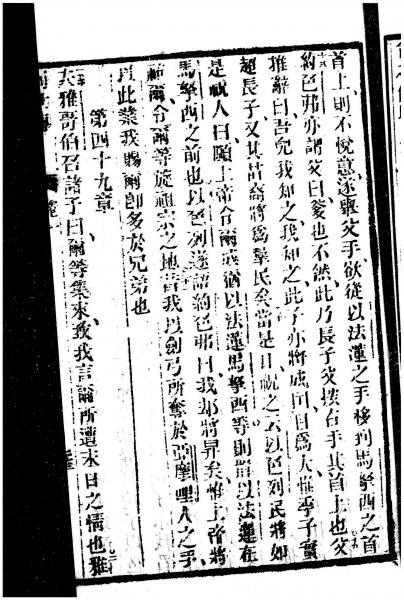 首上、則不悅意、遂舉父手、欲從以法蓮之手移到馬拏西之首
約色弗亦謂父曰、父也不然、此乃長子、父按右手其首上也、父
推辭曰、吾兒我知之、我知之、此子亦將成同自為大、惟季子實
超長子、又其苗裔將為羣民矣、當是日祝之云、以色列民將如
是祝人曰、願上帝令爾成猶以法蓮馬拏西等、則以法蓮在
馬拏西之前也、以色列遂語約色弗曰、我却將昇矣、惟上帝將
祐爾、令爾等旋祖宗之地、昔我以劍弓所奪於亞摩哩人之手
以此業我賜爾、即多於兄弟也
第四十九章
夫雅哥伯召諸子曰、爾等集來、致我言諭所遭末日之情也、雅